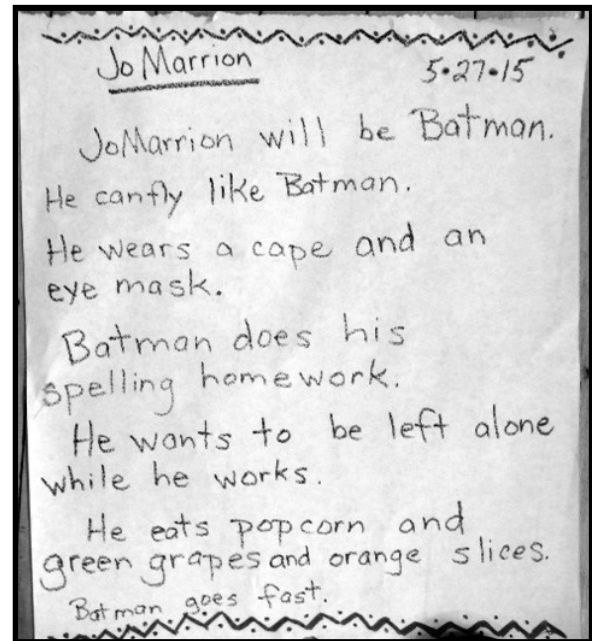 Jo Marrion 5•27•15
JoMarrion will be Batman.
He canfly like Batman.
He wears a cape and an
eye mask.
Batman does his
spelling homework.
He wants to be left alone
while he works.
He eats popcorn and
green grapes and orange slices.
Batman goes fast.